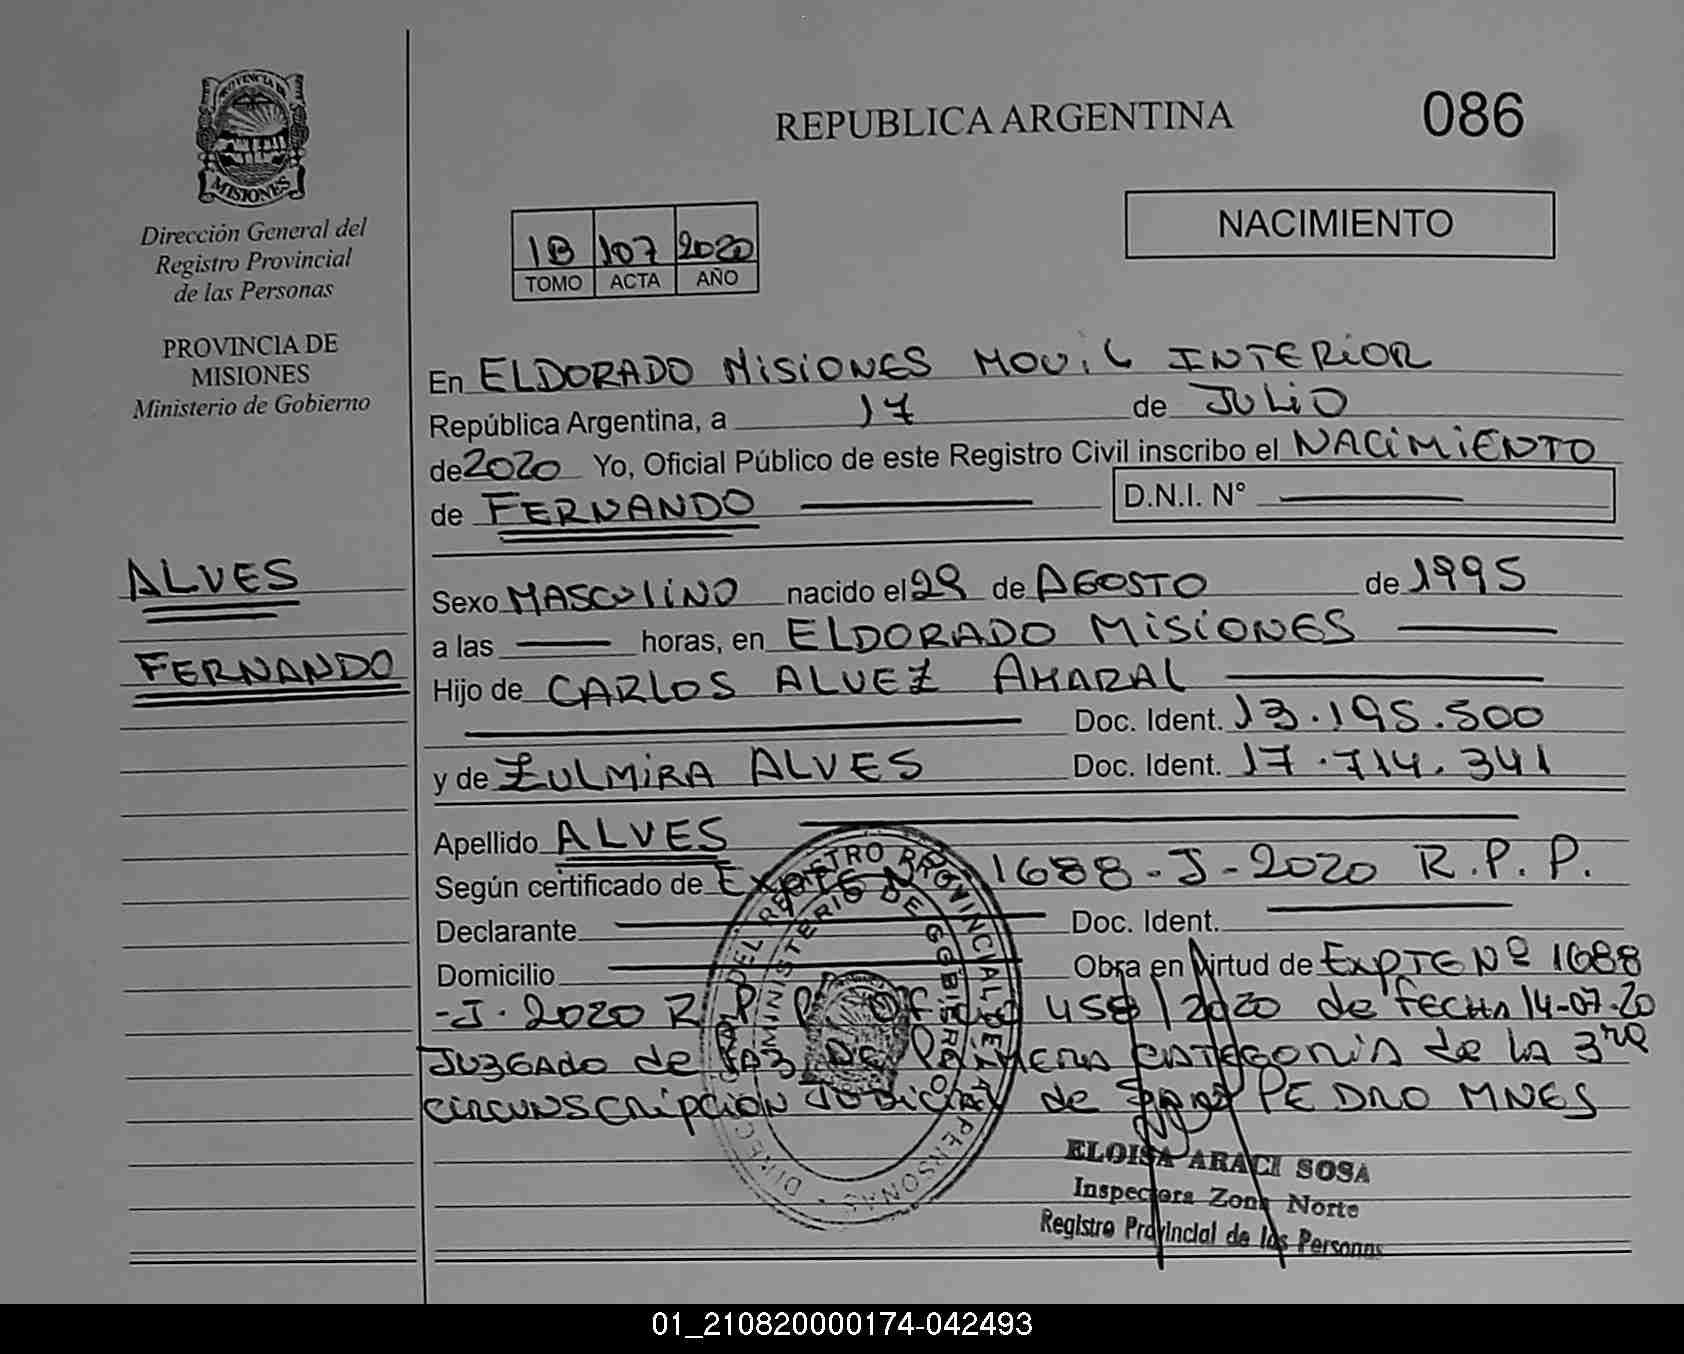 PROVINCIA DE
MISIONES
Dirección General del
Registro Provincial
de las Personas
PROVINCIA DE
MISIONES
Ministerio de Gobierno
ALVES
FERNANDO
REPUBLICA ARGENTINA
086
1B 107 2020
TOMO ACTA AÑO
NACIMIENTO
En ELDORADO MISIONES MOVIL INTERIOR
República Argentina, a 17 de JULIO
de 2020 Yo, Oficial Público de este Registro Civil inscribo el NACIMIENTO
de FERNANDO D.N.I. N°
Sexo MASCULINO nacido el 29 de AGOSTO de 1995
a las horas, en ELDORADO MISIONES
Hijo de CARLOS ALVEZ AMARAL
Doc. Ident. 13.195.500
y de ZULMIRA ALVES Doc. Ident. 17.714.341
Apellido ALVES
Según certificado de EXPTE Nº 1688-J-2020 R.P.P.
Declarante Doc. Ident.
Domicilio Obra en Virtud de EXPTE Nº 1688
-J-2020 R.P.P. 2020 de FECHA 14-07-20
JUZGADO de PAZ DE PRIMERA CATEGORIA de LA 3ra
CIRCUNSCRIPCION JUDICIAL de SAN PEDRO MNES
DIRECCION DEL REGISTRO PROVINCIAL DE LAS PERSONAS
MINISTERIO DE GOBIERNO
ELOISA ARACI SOSA
Inspectora Zona Norte
Registro Provincial de las Personas
01_210820000174-042493